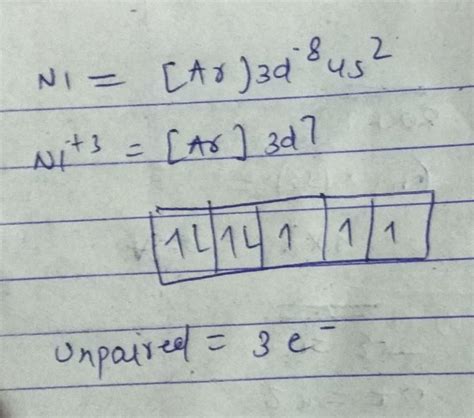 Ni = [Ar) 3d⁸ 4s²
Ni⁺³ = [Ar] 3d7
1L 1L 1 1 1
Unpaired = 3 e⁻